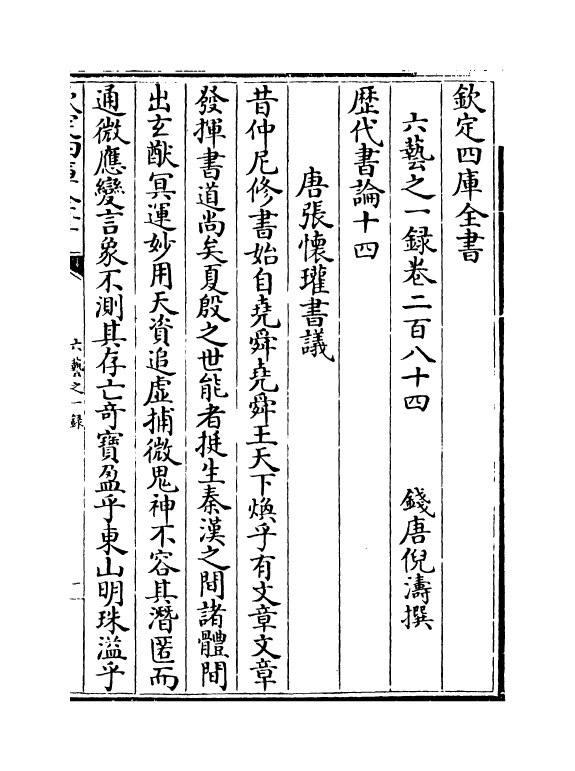 欽定四庫全書
六藝之一録卷二百八十四
錢唐倪濤撰
歴代書論十四
唐張懷瓘書議
昔仲尼修書始自堯舜堯舜王天下煥乎有文章文章
發揮書道尚矣夏殷之世能者挺生秦漢之間諸體間
出玄猷冥運妙用天資追虛捕微鬼神不容其潛匿而
通微應變言象不測其存亡奇寶盈乎東山明珠溢乎
六藝之一録